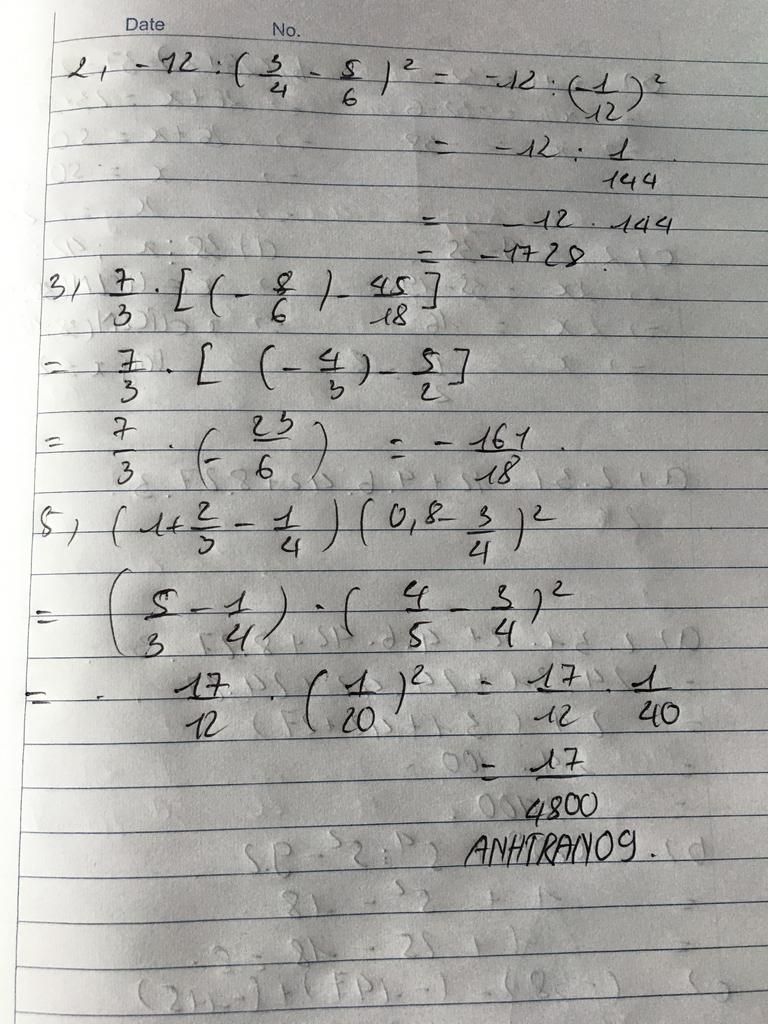 Date No.
2, -12 : (3/4 - 5/6)² = -12 : (-1/12)²
= -12 : 1/144
= -12 . 144
= -1728.
3, 7/3 . [(-8/6) - 45/18]
= 7/3 . [(-4/3) - 5/2]
= 7/3 . (-23/6) = -161/18.
5, (1 + 2/3 - 1/4) (0,8 - 3/4)²
= (5/3 - 1/4) . (4/5 - 3/4)²
= 17/12 . (1/20)² = 17/12 . 1/40
= 17/4800
ANHTRAN09.